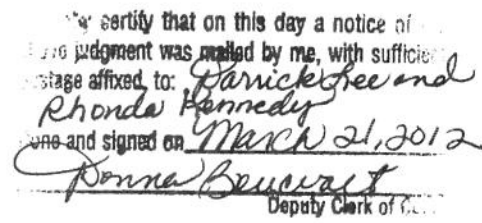 certify that on this day a notice of
judgment was mailed by me, with
affixed, to: Darrick Lee and
Rhonda Kennedy
and signed on March 21, 2012
Donna
Deputy Clerk of